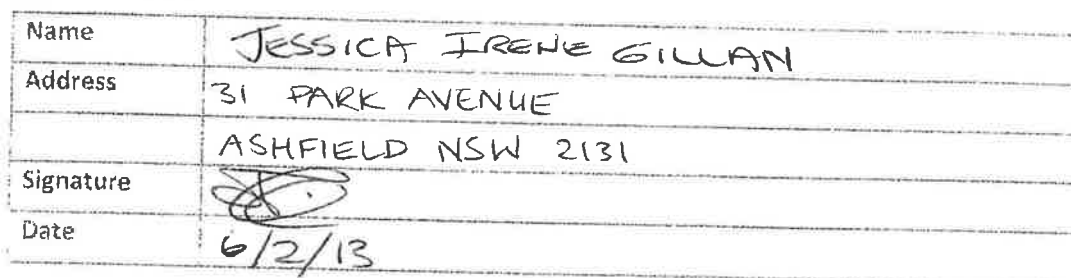 Name JESSICA IRENE GILLAN
Address 31 PARK AVENUE
ASHFIELD NSW 2131
Signature
Date 6/2/13